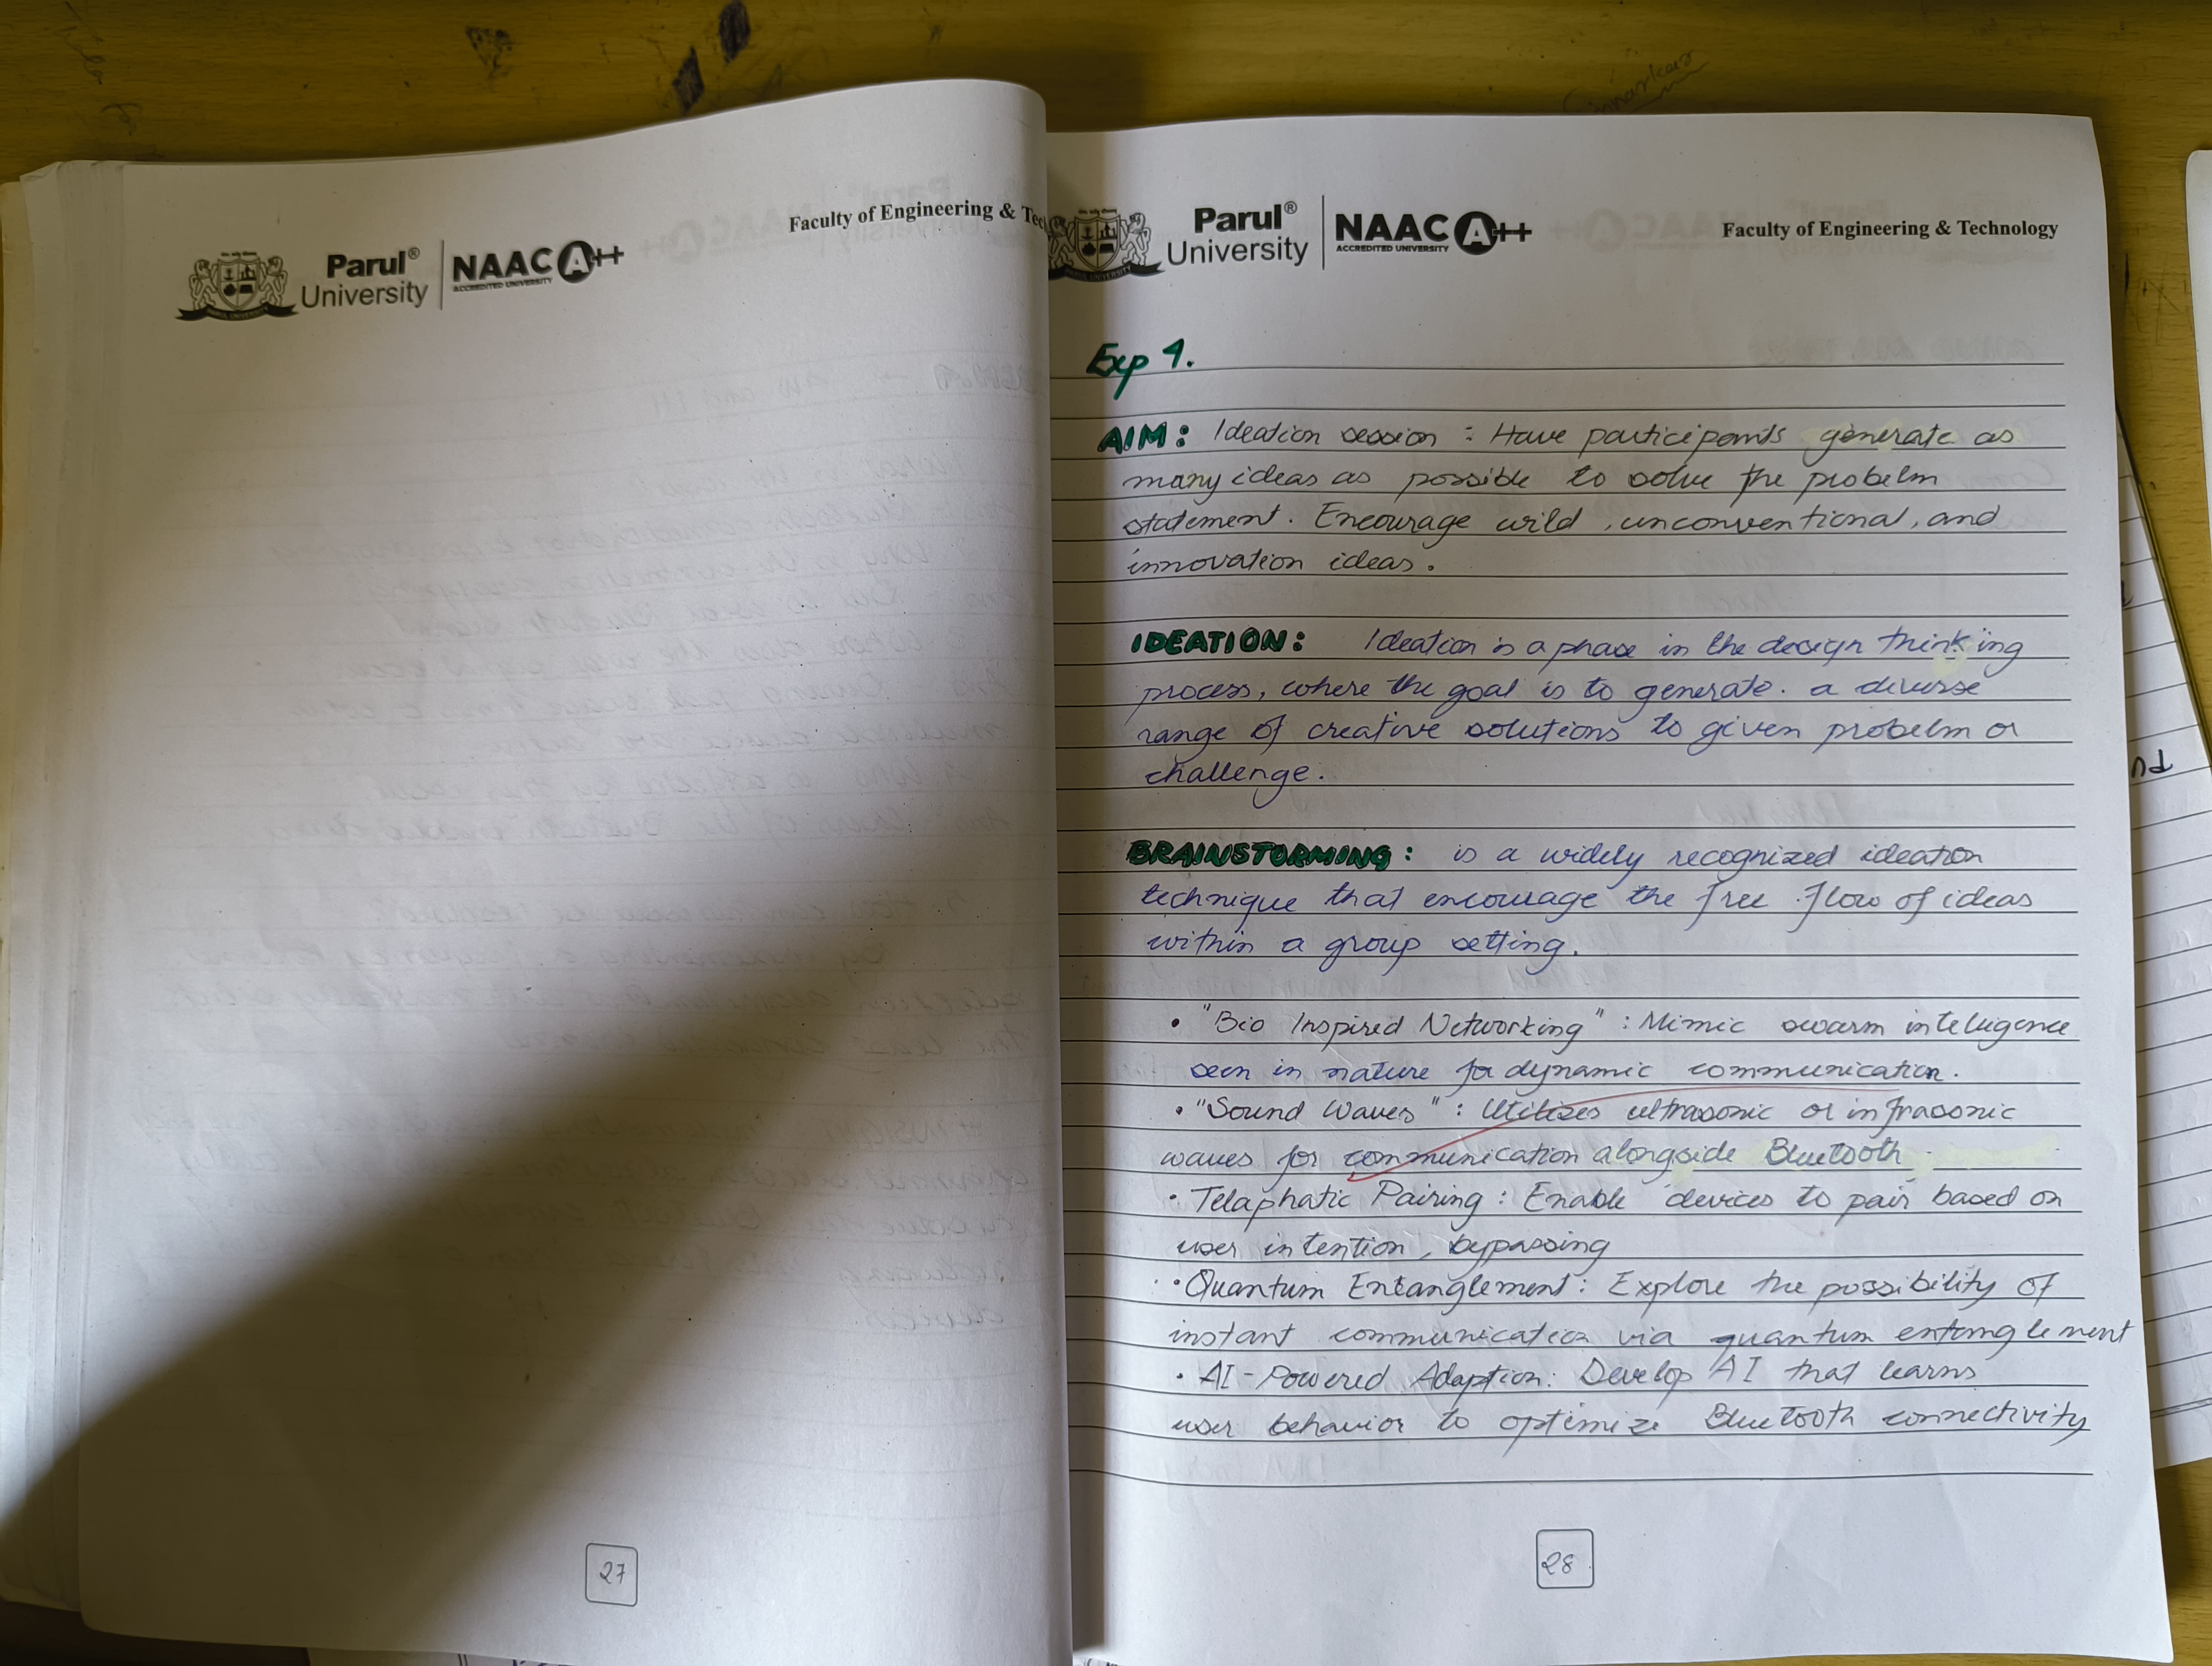 Faculty of Engineering & Tec
Parul®
University
NAAC A++
ACCREDITED UNIVERSITY
PARUL UNIVERSITY
27
Parul®
University
NAAC A++
ACCREDITED UNIVERSITY
Faculty of Engineering & Technology
Exp 4.
AIM: Ideation session : Have participants generate as
many ideas as possible to solve the probelm
statement. Encourage wild, unconventional, and
innovation ideas.
IDEATION: Ideation is a phase in the design thinking
process, where the goal is to generate. a diverse
range of creative solutions to given probelm or
challenge.
BRAINSTORMING: is a widely recognized ideation
technique that encourage the free flow of ideas
within a group setting.
• "Bio Inspired Networking" : Mimic swarm intelligence
seen in nature for dynamic communication.
• "Sound Waves" : Utilizes ultrasonic or infrasonic
waves for communication alongside Bluetooth
• Telaphatic Pairing : Enable devices to pair based on
user intention, bypassing
• Quantum Entanglement : Explore the possibility of
instant communication via quantum entanglement
• AI-Powered Adaption: Develop AI that learns
user behavior to optimize Bluetooth connectivity
28